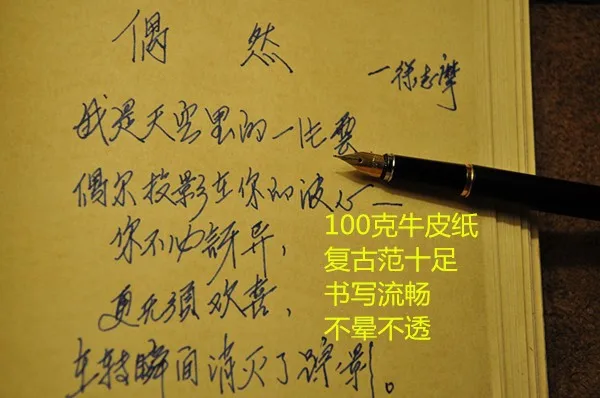 偶然
—徐志摩
我是天空里的一片雲
偶尔投影在你的波心—
你不必訝异，
更无須欢喜，
在转瞬间消灭了踪影。
100克牛皮纸
复古范十足
书写流畅
不晕不透